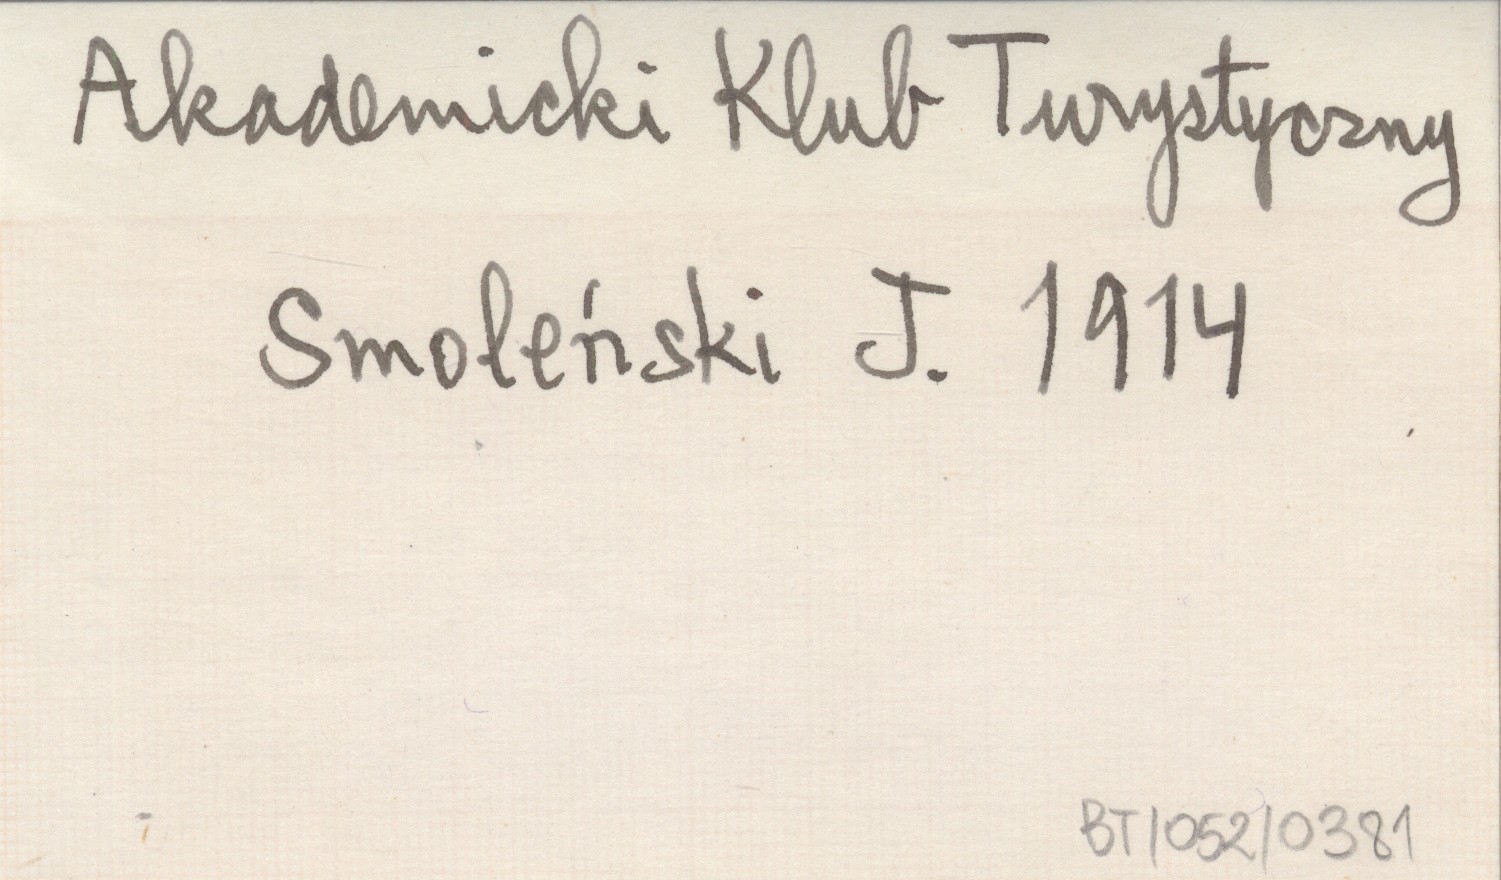 Akademicki Klub Turystyczny
Smoleński J. 1914
BT/052/0381